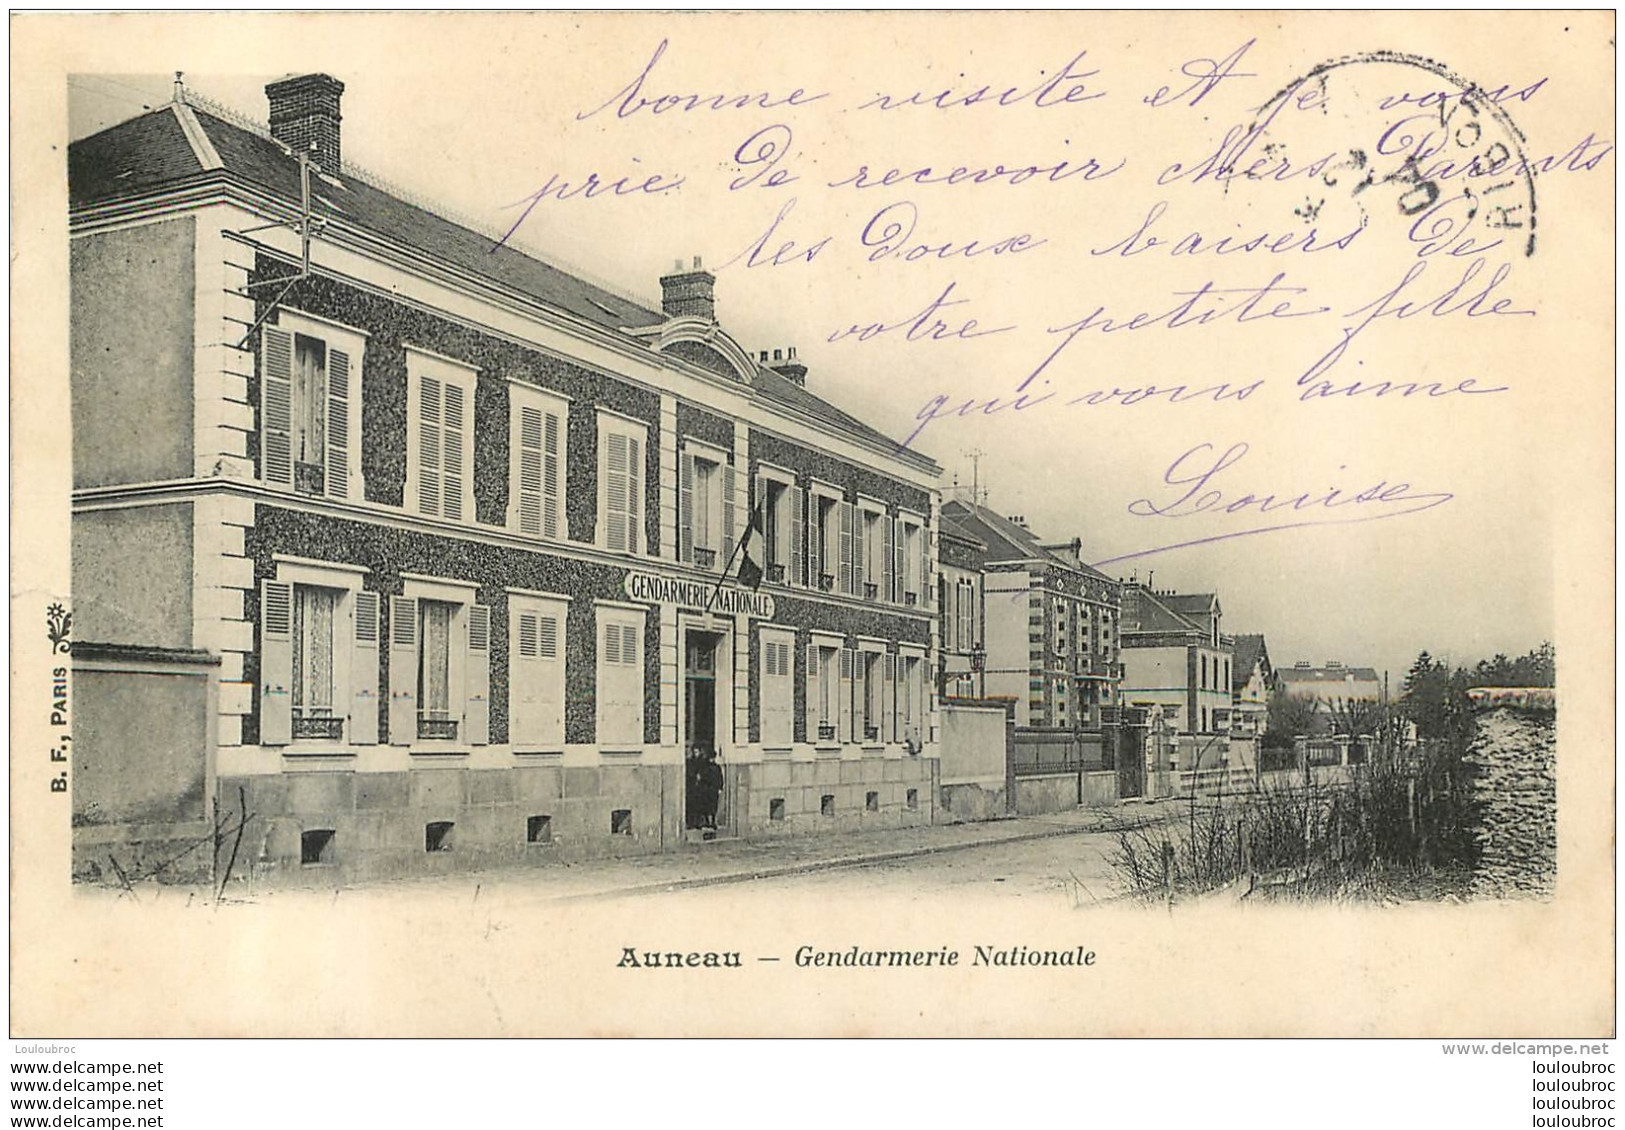 bonne visite et je vous
prie de recevoir chers Parents
les doux baisers de
votre petite fille
qui vous aime
Louise
GENDARMERIE NATIONALE
B. F., PARIS
Auneau — Gendarmerie Nationale
Louloubroc
www.delcampe.net
www.delcampe.net
www.delcampe.net
www.delcampe.net
www.delcampe.net
louloubroc
louloubroc
louloubroc
louloubroc